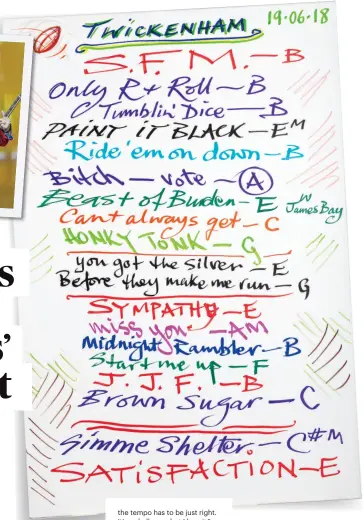 TWICKENHAM. 19·06·18
S.F.M. — B
Only R + Roll — B
Tumblin' Dice — B
PAINT IT BLACK — EM
Ride 'em on down — B
Bitch — vote — A
Beast of Burden — E W James Bay
Can't always get — C
HONKY TONK — G
you got the silver — E
Before they make me run — G
SYMPATHY — E
miss you — AM
Midnight Rambler — B
Start me up — F
J. J. F. — B
Brown Sugar — C
Gimme Shelter. — C#M
SATISFACTION — E
s
s'
t
the tempo has to be just right.